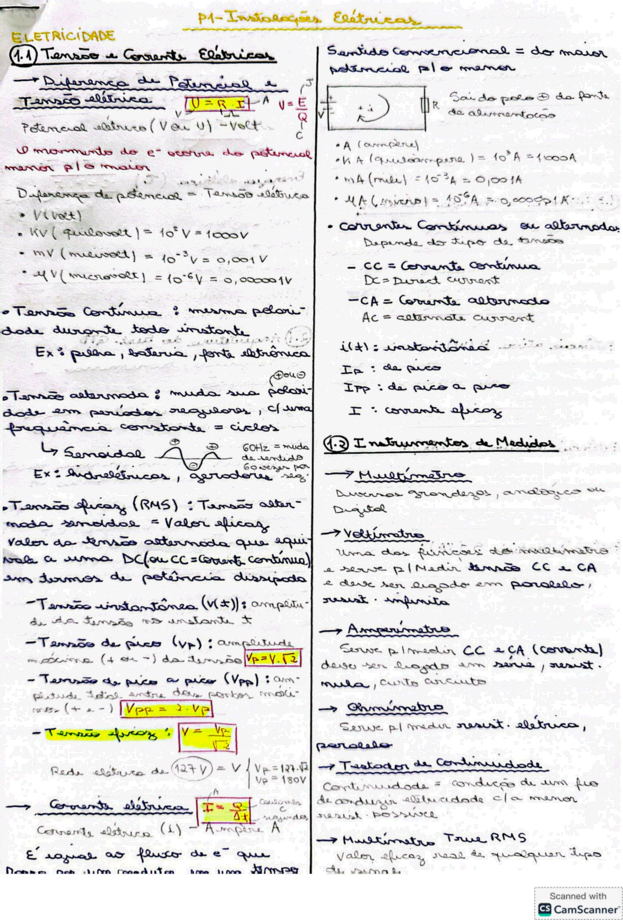 P1 - Instalações Elétricas
ELETRICIDADE
1.1 Tensão e Corrente Elétricas
→ Diferença de Potencial e
Tensão elétrica U = R.I A V = E/Q J
V Ω C
Potencial elétrico (V ou U) - Volt
O movimento do e⁻ ocorre do potencial
menor p/ o maior
Diferença de potencial = Tensão elétrica
• V (Volt)
• KV (quilovolt) = 10³V = 1000V
• mV (milivolt) = 10⁻³V = 0,001V
• μV (microvolt) = 10⁻⁶V = 0,000001V
• Tensão Contínua : mesma polari-
dade durante todo instante
Ex: pilha, bateria, fonte eletrônica
⊕ ou ⊖
• Tensão alternada : muda sua polari-
dade em períodos regulares, c/ uma
frequência constante = ciclos
↳ Senoidal + + - 60Hz = muda
de sentido
60 vezes por
seg.
Ex: hidrelétricas, geradores
• Tensão eficaz (RMS) : Tensão alter-
nada senoidal = Valor eficaz
Valor da tensão alternada que equi-
vale a uma DC (ou CC = Corrente contínua)
em termos de potência dissipada
- Tensão instantânea (V(t)) : amplitu-
de da tensão no instante t
- Tensão de pico (Vp) : amplitude
máxima (+ ou -) da tensão Vp = V.√2
- Tensão de pico a pico (Vpp) : am-
plitude total entre dois pontos máxi-
mos (+ e -) Vpp = 2.Vp
- Tensão eficaz : V = Vp/√2
Rede elétrica de 127V = V Vp = 127.√2
Vp = 180V
→ Corrente elétrica I = Q/Δt A Coulomb C segundos
Corrente elétrica (i) - Ampère A
É igual ao fluxo de e⁻ que
passa por um condutor em um tempo
Sentido convencional = do maior
potencial p/ o menor
V + - i R Sai do polo ⊕ da fonte
de alimentação
• A (ampère)
• KA (quiloampere) = 10³A = 1000A
• mA (mile) = 10⁻³A = 0,001A
• μA (micro) = 10⁻⁶A = 0,000001A
• Correntes Contínuas ou alternadas
Depende do tipo de tensão
- CC = Corrente contínua
DC = Direct current
- CA = Corrente alternada
AC = alternate current
i(t) : instantânea
Ip : de pico
Ipp : de pico a pico
I : corrente eficaz
1.2 Instrumentos de Medidas
→ Multímetro
Diversas grandezas, analógico ou
Digital
→ Voltímetro
Uma das funções do multímetro
e serve p/ Medir tensão CC e CA
e deve ser ligado em paralelo,
resist. infinita
→ Amperímetro
Serve p/ medir CC e CA (corrente)
deve ser ligado em série, resist.
nula, curto circuito
→ Ohmímetro
Serve p/ medir resist. elétrica,
paralelo
→ Testador de Continuidade
Continuidade = condição de um fio
de conduzir eletricidade c/ a menor
resist. possível
→ Multímetro True RMS
Valor eficaz real de qualquer tipo
de sinal
Scanned with
CS CamScanner